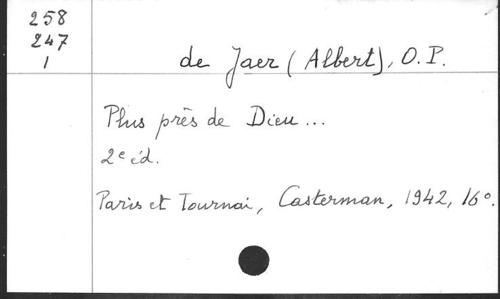 258
247
1
de Jaer (Albert), O.P.
Plus près de Dieu...
2e éd.
Paris et Tournai, Casterman, 1942, 16°.